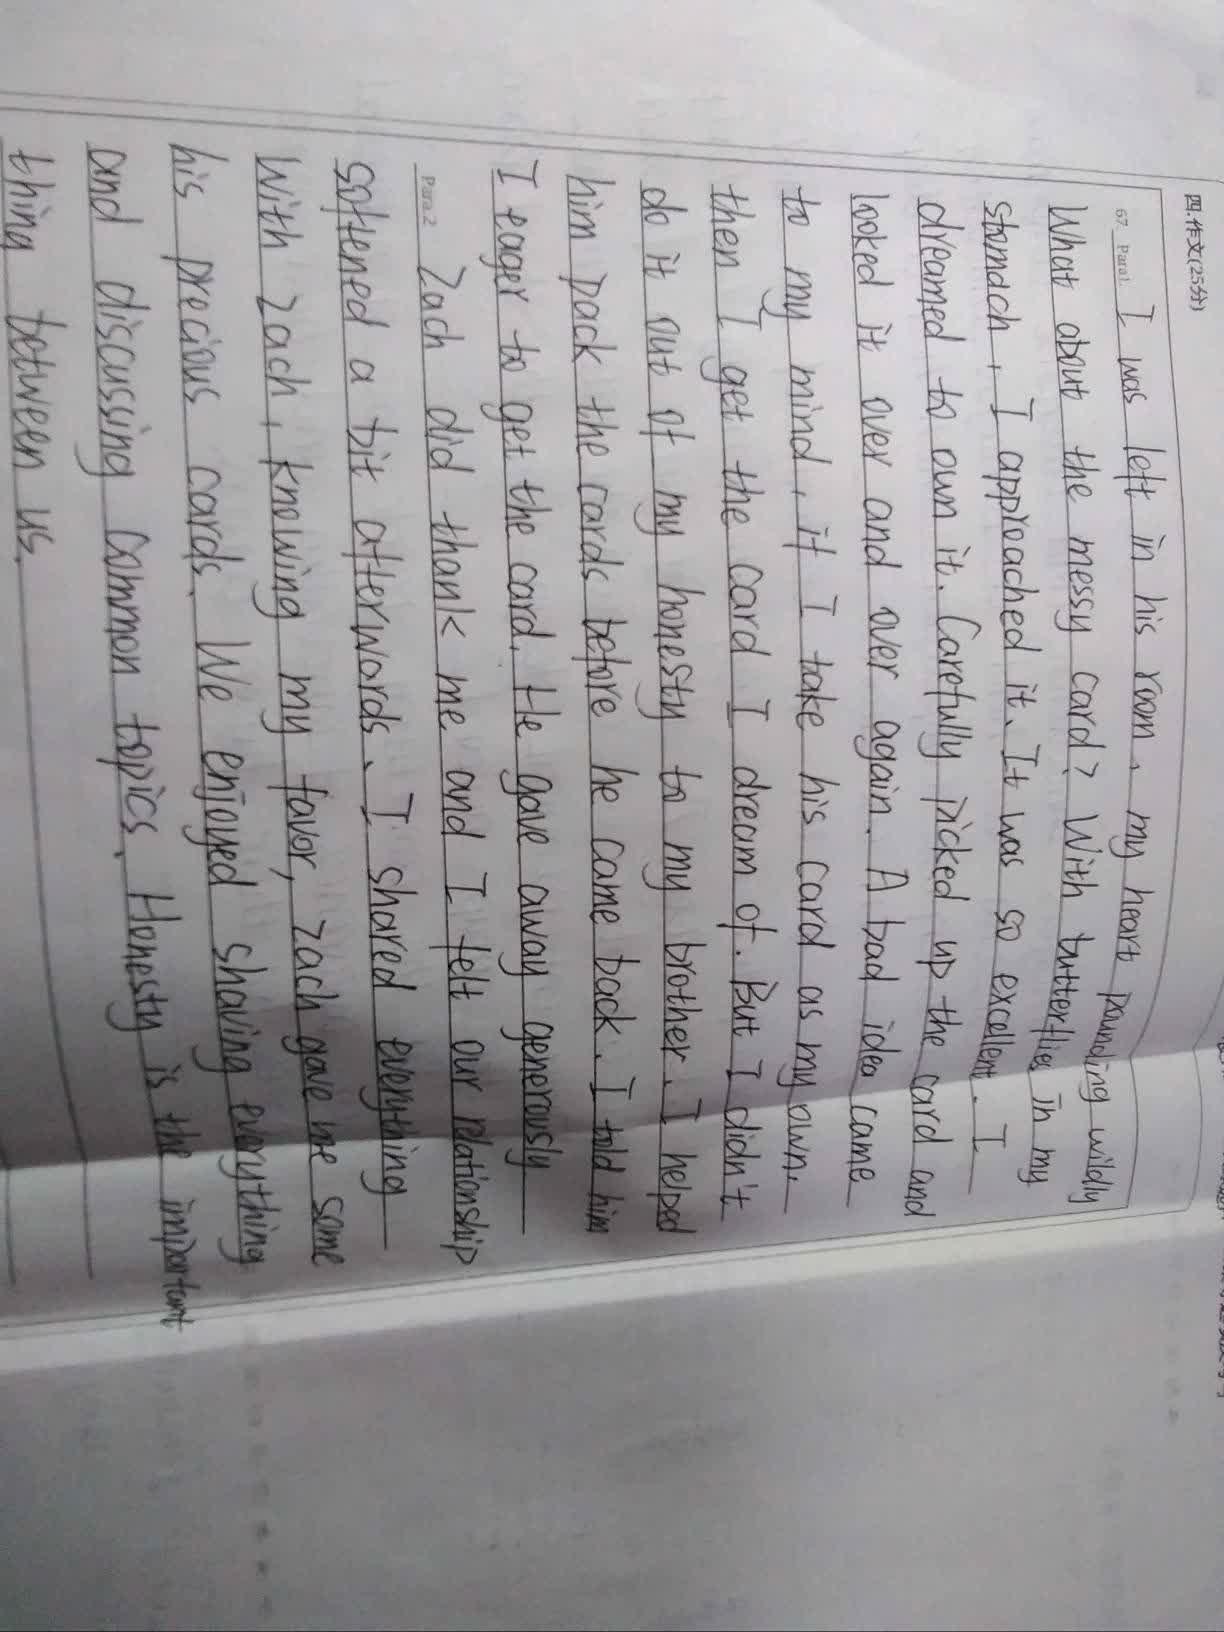 四.作文(25分)
67 Para1. I was left in his room, my heart pounding wildly
What about the messy card? With butterflies in my
stomach, I approached it. It was so excellent. I
dreamed to own it. Carefully picked up the card and
looked it over and over again. A bad idea came
to my mind, if I take his card as my own,
then I get the card I dream of. But I didn't
do it out of my honesty to my brother. I helped
him pack the cards before he came back. I told him
I eager to get the card. He gave away generously
Para.2 Zach did thank me and I felt our relationship
softened a bit afterwords. I shared everything
With Zach, knowing my favor, Zach gave me some
his precious cards. We enjoyed sharing everything
and discussing common topics. Honesty is the important
thing between us.